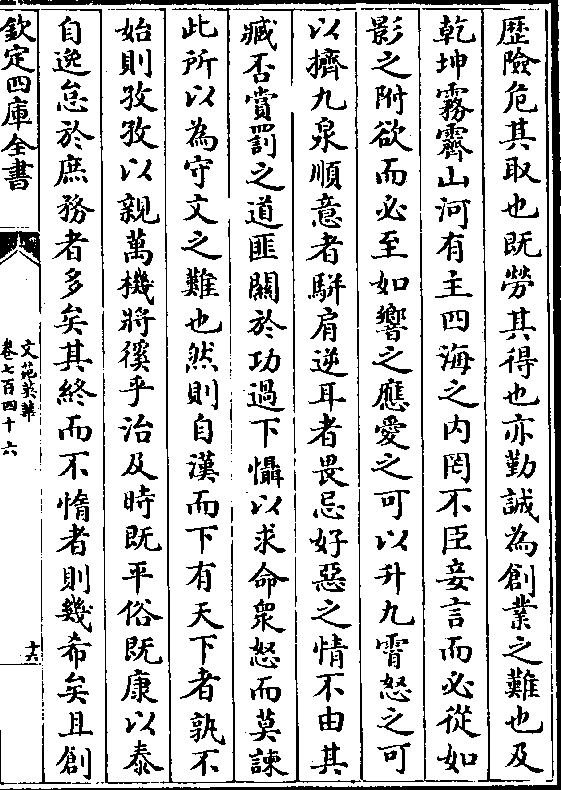 歴險危其取也既勞其得也亦勤誠為創業之難也及
乾坤霧霽山河有主四海之内罔不臣妾言而必從如
影之附欲而必至如響之應愛之可以升九霄怒之可
以擠九泉順意者駢肩逆耳者畏忌好惡之情不由其
臧否賞罰之道匪關於功過下懾以求命衆怒而莫諫
此所以為守文之難也然則自漢而下有天下者孰不
始則孜孜以親萬機將徯乎治及時既平俗既康以泰
自逸怠於庶務者多矣其終而不惰者則幾希矣且創
欽定四庫全書
文苑英華
卷七百四十六
十六